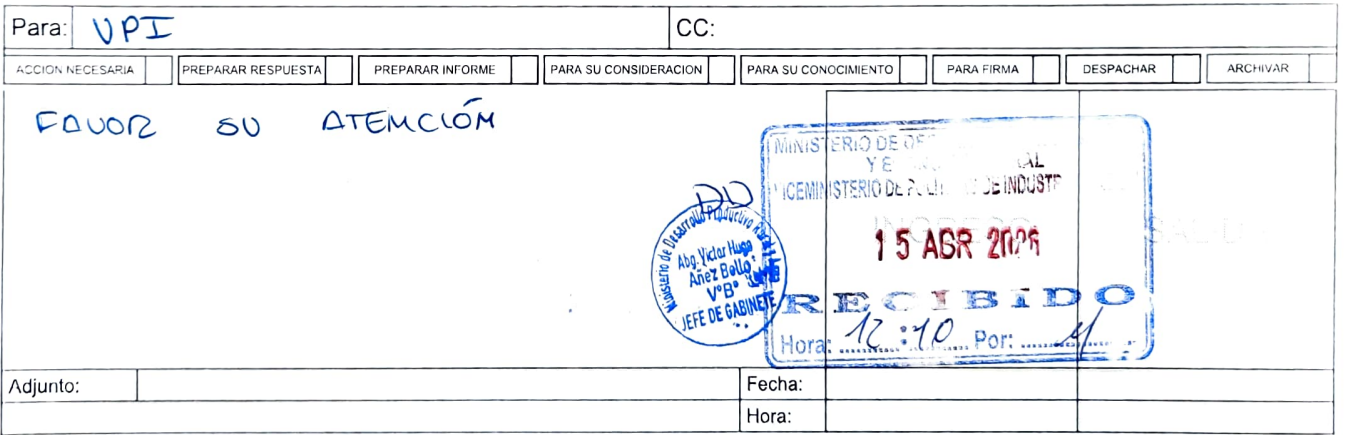 Para: VPI CC:
ACCION NECESARIA PREPARAR RESPUESTA PREPARAR INFORME PARA SU CONSIDERACION PARA SU CONOCIMIENTO PARA FIRMA DESPACHAR ARCHIVAR
FAVOR SU ATENCIÓN
Ministerio de Desarrollo Productivo Rural
Abg. Victor Hugo
Añez Bello
V°B°
JEFE DE GABINETE
MINISTERIO DE
Y E
VICEMINISTERIO DE DE INDUSTR
INGRESO SALID
15 AGR
RECIBIDO
Hora: 12:10 Por:
Adjunto: Fecha:
Hora: